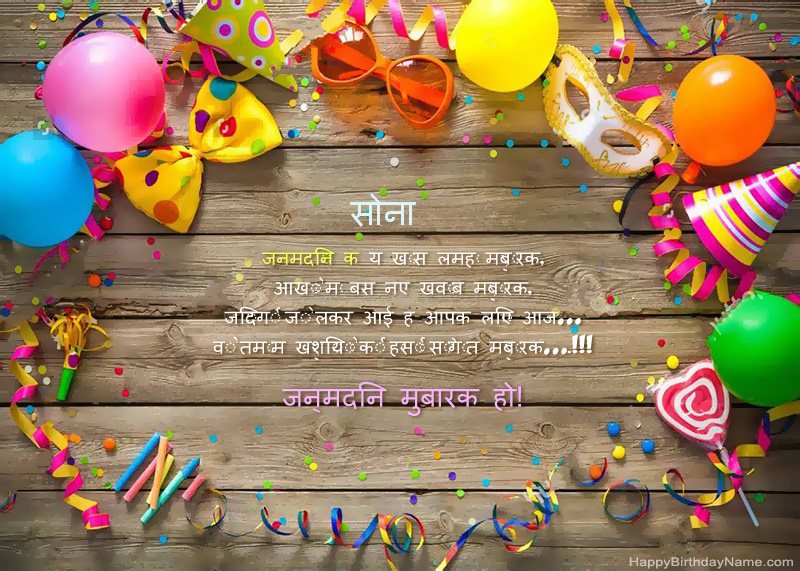 सोना
जनमदिन क य ख़ास लमह मब़ारक,
आख़ों म बस नए ख़्वाब मब़ारक,
ज़िंदिगी जो लेकर आई ह आपक लिए आज...
वो तमाम ख़ुशियों की हसीं सौगात मब़ारक....!!!
जन्मदिन मुबारक हो!
HappyBirthdayName.com